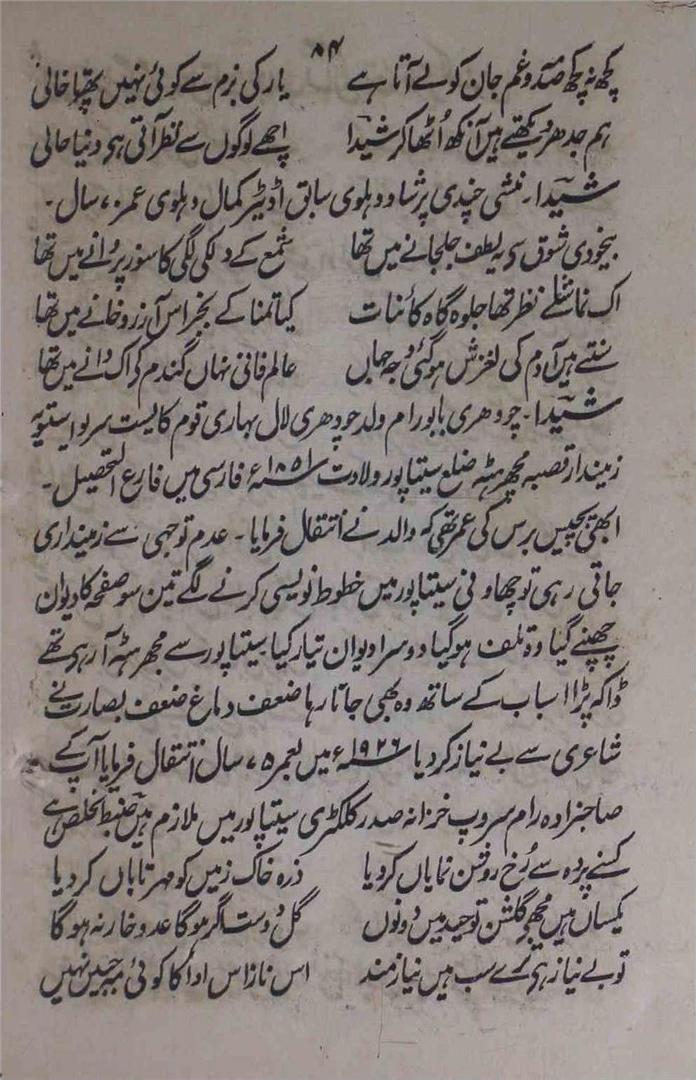 ۸۴
کچھ نہ کچھ صدمہ و غم جان کو لے آتا ہے یار کی بزم سے کوئی نہیں پھرتا خالی
ہم جدھر دیکھتے ہیں آنکھ اُٹھا کر شیدا اچھے لوگوں سے نظر آتی ہی دنیا خالی
شیدا۔ منشی چندی پرشاد دہلوی سابق اڈیٹر کمال دہلوی عمر ۷۰ سال۔
بیخودی شوق سی یہ لطف جلجانے میں تھا شمع کے دلکی لگی کا سوز پروانے میں تھا
اک تماشائے نظر تھا جلوہ گاہ کائنات کیا تمنا کے بجز اس آرزو خانے میں تھا
سنتے ہیں آدم کی لغزش ہو گئی وجہ جہاں عالم فانی نہاں گندم کے اک دانے میں تھا
شیدا۔ چودھری بابو رام ولد چودھری لال بہاری قوم کایست سریواستویہ
زمیندار قصبہ مچھرہٹہ ضلع سیتاپور ولادت ۱۸۵۱ء فارسی میں فارغ التحصیل۔
ابھی پچیس برس کی عمر تھی کہ والد نے انتقال فرمایا۔ عدم توجہی سے زمینداری
جاتی رہی تو چھاونی سیتاپور میں خطوط نویسی کرنے لگے تین سو صفحہ کا دیوان
چھپنے گیا وہ تلف ہو گیا دوسرا دیوان تیار کیا سیتاپور سے مچھرہٹہ آ رہی تھے
ڈاکہ پڑا اسباب کے ساتھ وہ بھی جاتا رہا ضعف دماغ ضعف بصارت نے
شاعری سے بے نیاز کر دیا ۱۹۲۶ء میں بعمر ۷۵ سال انتقال فرمایا آپ کے
صاحبزادہ رام سروپ خزانہ صدر کلکٹری سیتاپور میں ملازم ہیں ضبط تخلص ہے
کسنے پردہ سے رُخ روشن نمایاں کر دیا ذرہ خاک زمیں کو مہر تاباں کر دیا
یکساں ہیں مجھے گلشن توحید میں دونوں گل دوست اگر ہوگا عدو خار نہ ہوگا
تو بے نیاز ہی ترے سب ہیں نیاز مند اس ناز اس ادا کا کوئی مہ جبیں نہیں